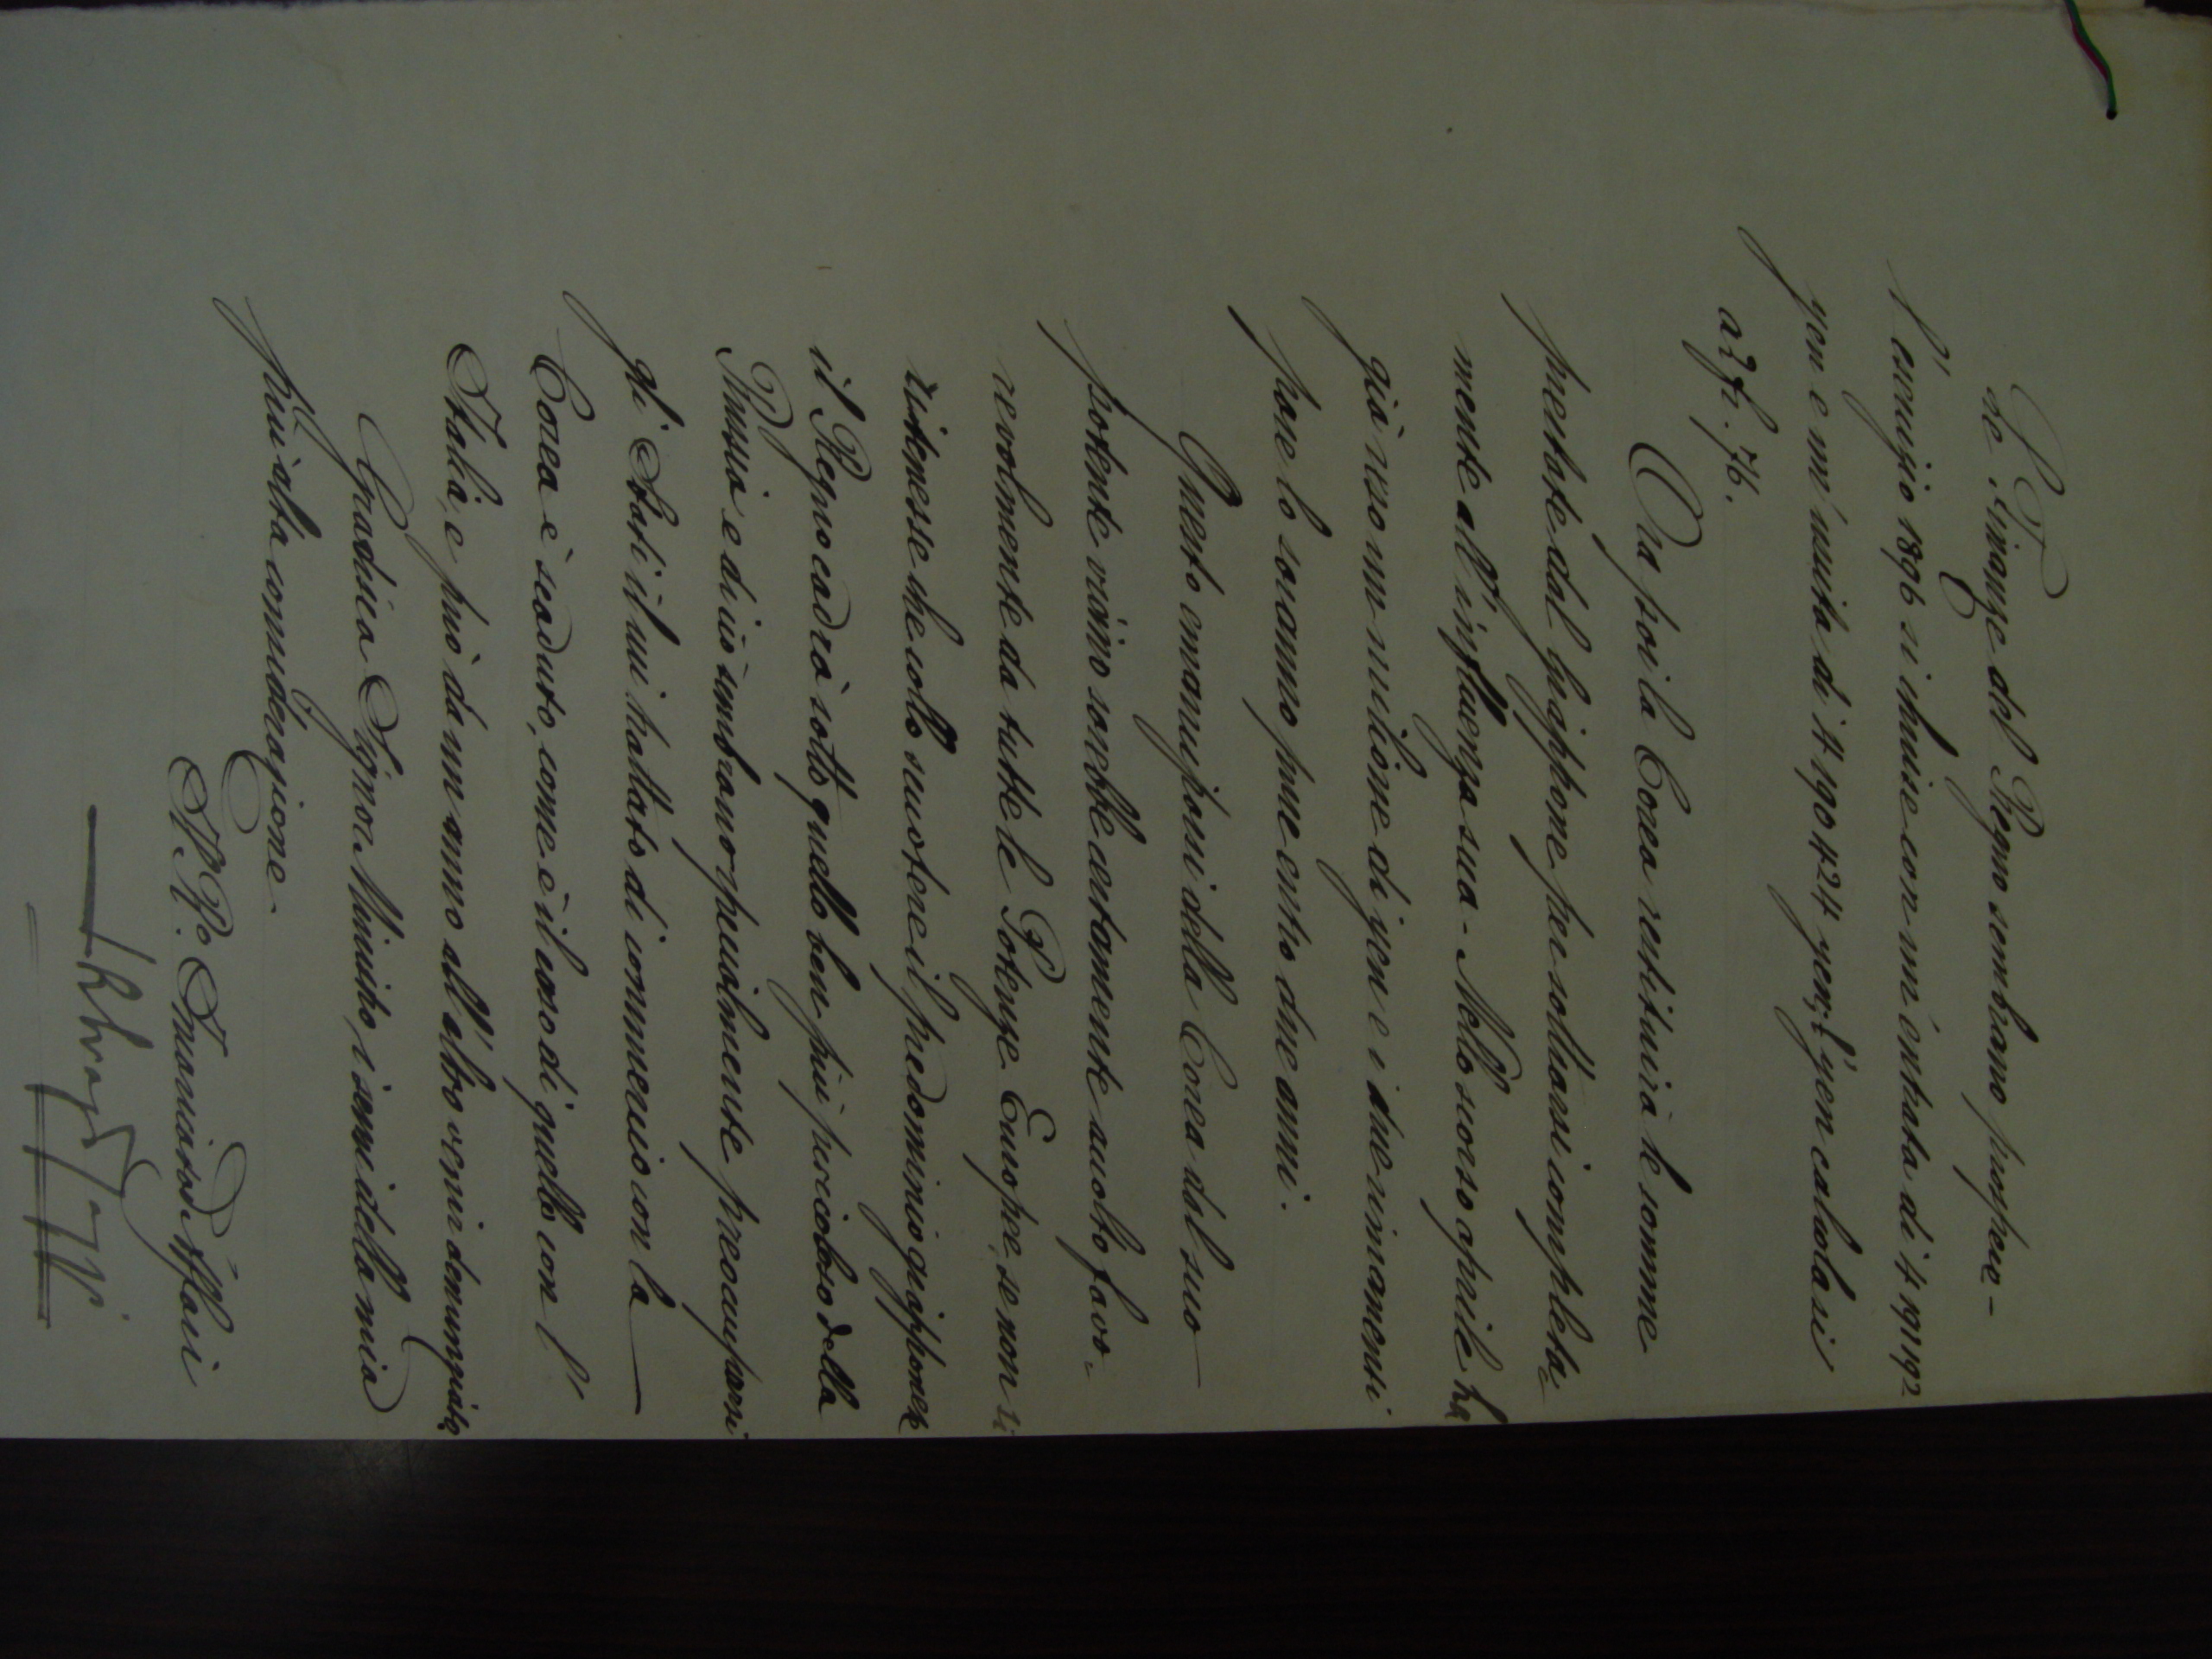 Le Finanze del Regno sembrano prospere-
l'esercizio 1896 si chiuse con un'entrata di 4 191 192
yen e un'uscita di 4 190 424 yen; l'yen calcolasi
a 2 fr. 76.
Ora poi la Corea restituirà le somme
prestate dal Giappone per sottrarsi completa=
mente all'influenza sua - Nello scorso aprile ha
già reso un milione di yen e i due rimanenti
pare lo saranno pure entro due anni.
Questo emanciparsi della Corea dal suo
potente vicino sarebbe certamente accolto favo=
revolmente da tutte le Potenze Europee, se non si
ritenesse che collo scuotere il predominio giapponese
il Regno cadrà sotto quello ben più pericoloso della
Russia e di ciò sembrano specialmente preoccuparsi
gli Stati il cui trattato di commercio con la
Corea è scaduto, come è il caso di quello con l'
Italia, e può da un anno all'altro venir denunziato
Gradisca Signor Ministro, i sensi della mia
più alta considerazione.
Il R.º Incaricato d'Affari